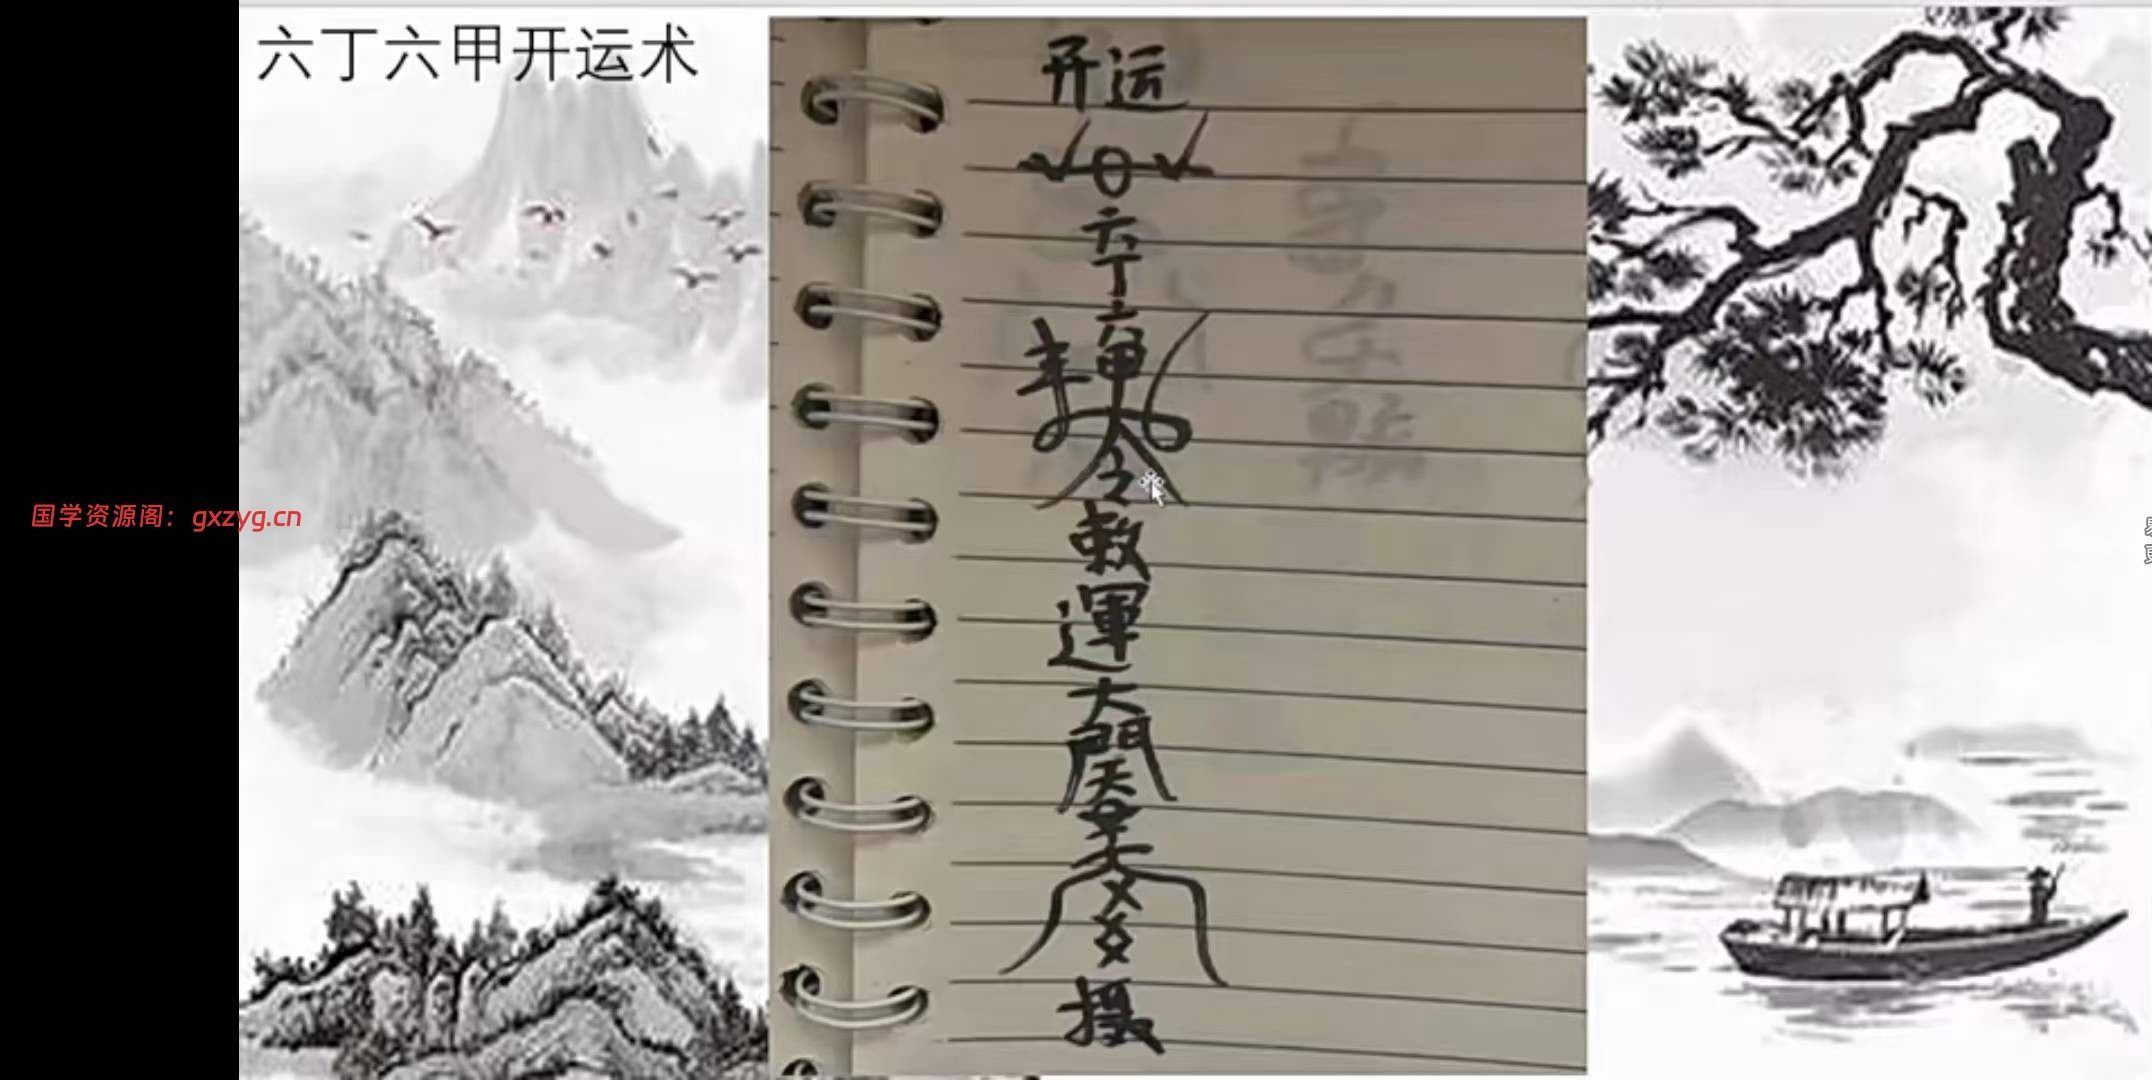 六丁六甲开运术
开运
六
丁
六
甲
令
敕
運
大
門
摄
国学资源阁：gxzyg.cn